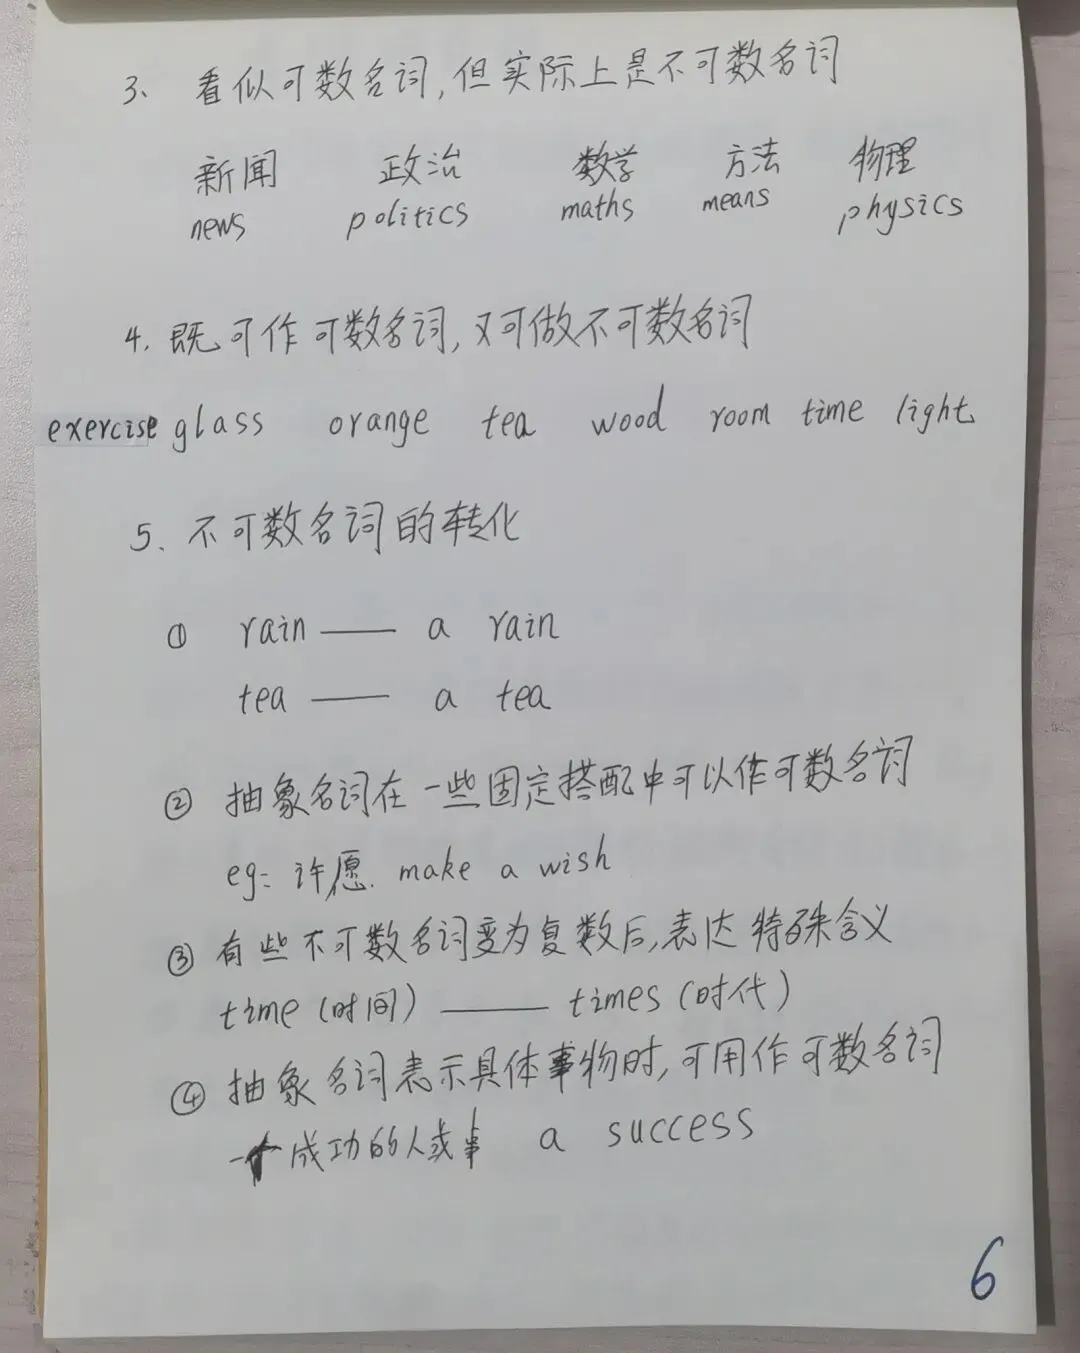 3、 看似可数名词,但实际上是不可数名词
新闻 政治 数学 方法 物理
news politics maths means physics
4. 既可作可数名词,又可做不可数名词
exercise glass orange tea wood room time light
5. 不可数名词的转化
① rain —— a rain
tea —— a tea
② 抽象名词在一些固定搭配中可以作可数名词
eg: 许愿. make a wish
③ 有些不可数名词变为复数后,表达特殊含义
time (时间) —— times (时代)
④ 抽象名词表示具体事物时,可用作可数名词
一个成功的人或事 a success
6